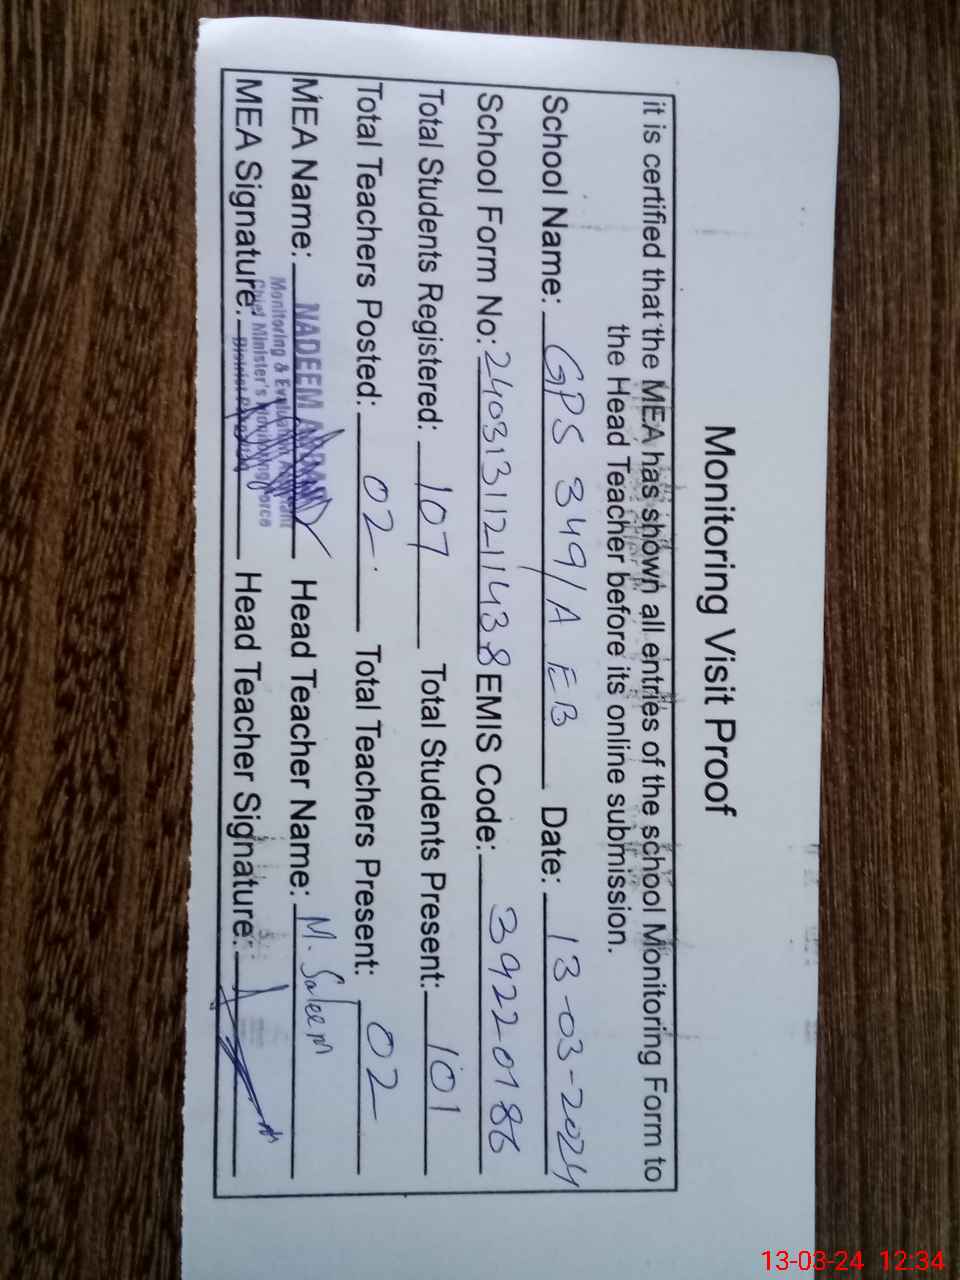 Monitoring Visit Proof
it is certified that the MEA has shown all entries of the school Monitoring Form to
the Head Teacher before its online submission.
School Name: GPS 349/A EB Date: 13-03-2024
School Form No: 24031311211438 EMIS Code: 39220186
Total Students Registered: 107 Total Students Present: 101
Total Teachers Posted: 02 Total Teachers Present: 02
MEA Name: NADEEM Head Teacher Name: M. Saleem
Monitoring & Evaluation
MEA Signature: Head Teacher Signature:
Chief Minister's Monitoring Force
District
13-03-24 12:34